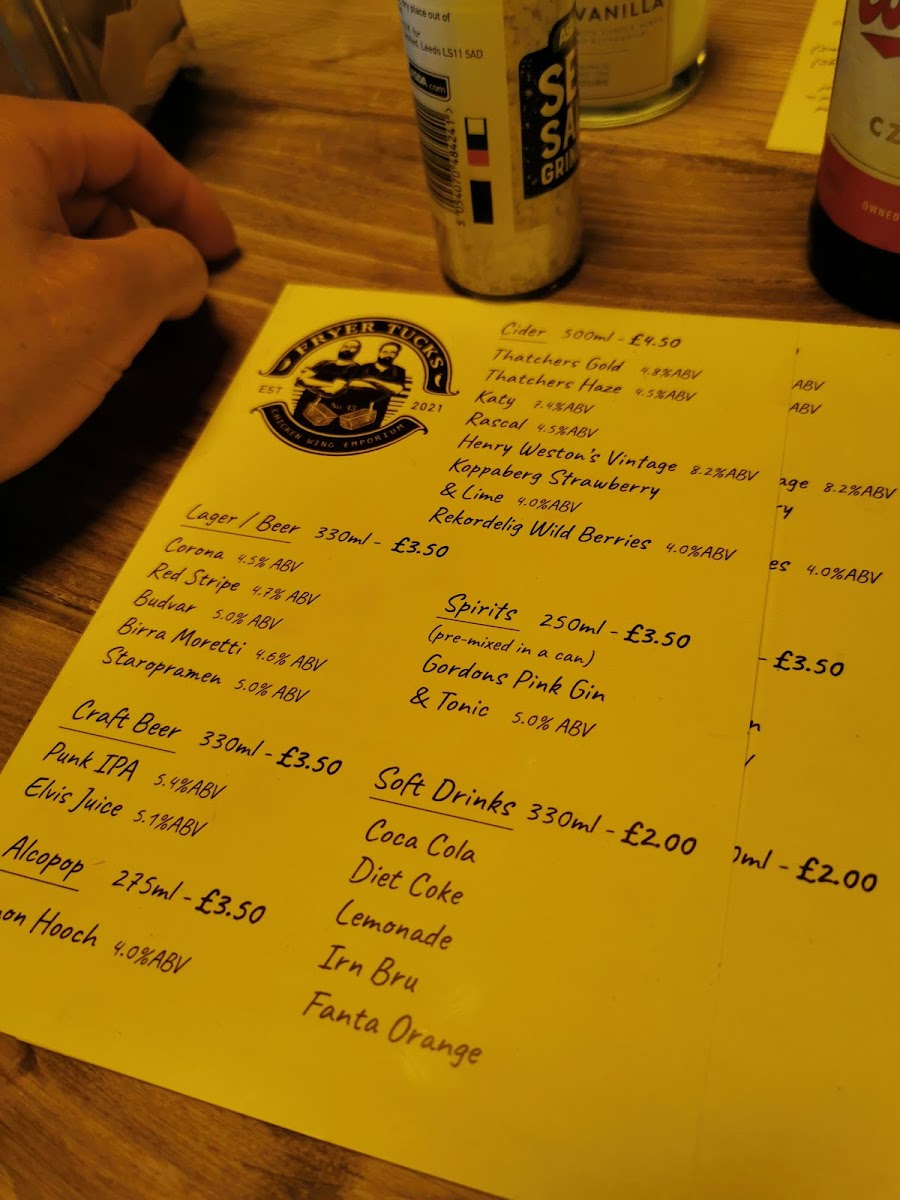 dry place out of
Leeds LS11 5AD
.com
5 054070 484241 >
VANILLA
CZ
OWNED
FRYER TUCKS
EST 2021
No 13
CHICKEN WING EMPORIUM
Lager / Beer 330ml - £3.50
Corona 4.5% ABV
Red Stripe 4.7% ABV
Budvar 5.0% ABV
Birra Moretti 4.6% ABV
Staropramen 5.0% ABV
Craft Beer 330ml - £3.50
Punk IPA 5.4%ABV
Elvis Juice 5.1%ABV
Alcopop 275ml - £3.50
on Hooch 4.0%ABV
Cider 500ml - £4.50
Thatchers Gold 4.8%ABV
Thatchers Haze 4.5%ABV
Katy 7.4%ABV
Rascal 4.5%ABV
Henry Weston's Vintage 8.2%ABV
Koppaberg Strawberry
& Lime 4.0%ABV
Rekordelig Wild Berries 4.0%ABV
Spirits 250ml - £3.50
(pre-mixed in a can)
Gordons Pink Gin
& Tonic 5.0% ABV
Soft Drinks 330ml - £2.00
Coca Cola
Diet Coke
Lemonade
Irn Bru
Fanta Orange
ABV
ABV
age 8.2%ABV
ry
es 4.0%ABV
- £3.50
n
0ml - £2.00